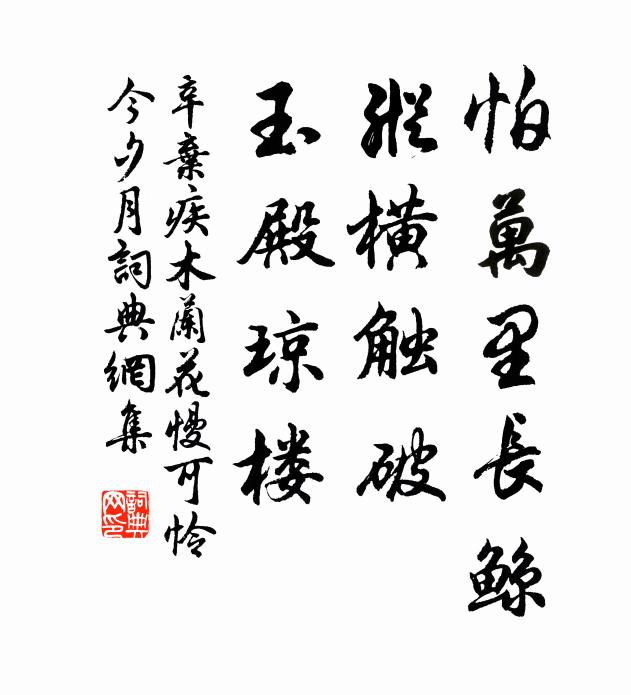 怕萬里長鯨
縱橫触破
玉殿琼楼
辛棄疾木蘭花慢可怜
今夕月詞典網集
詞典网印